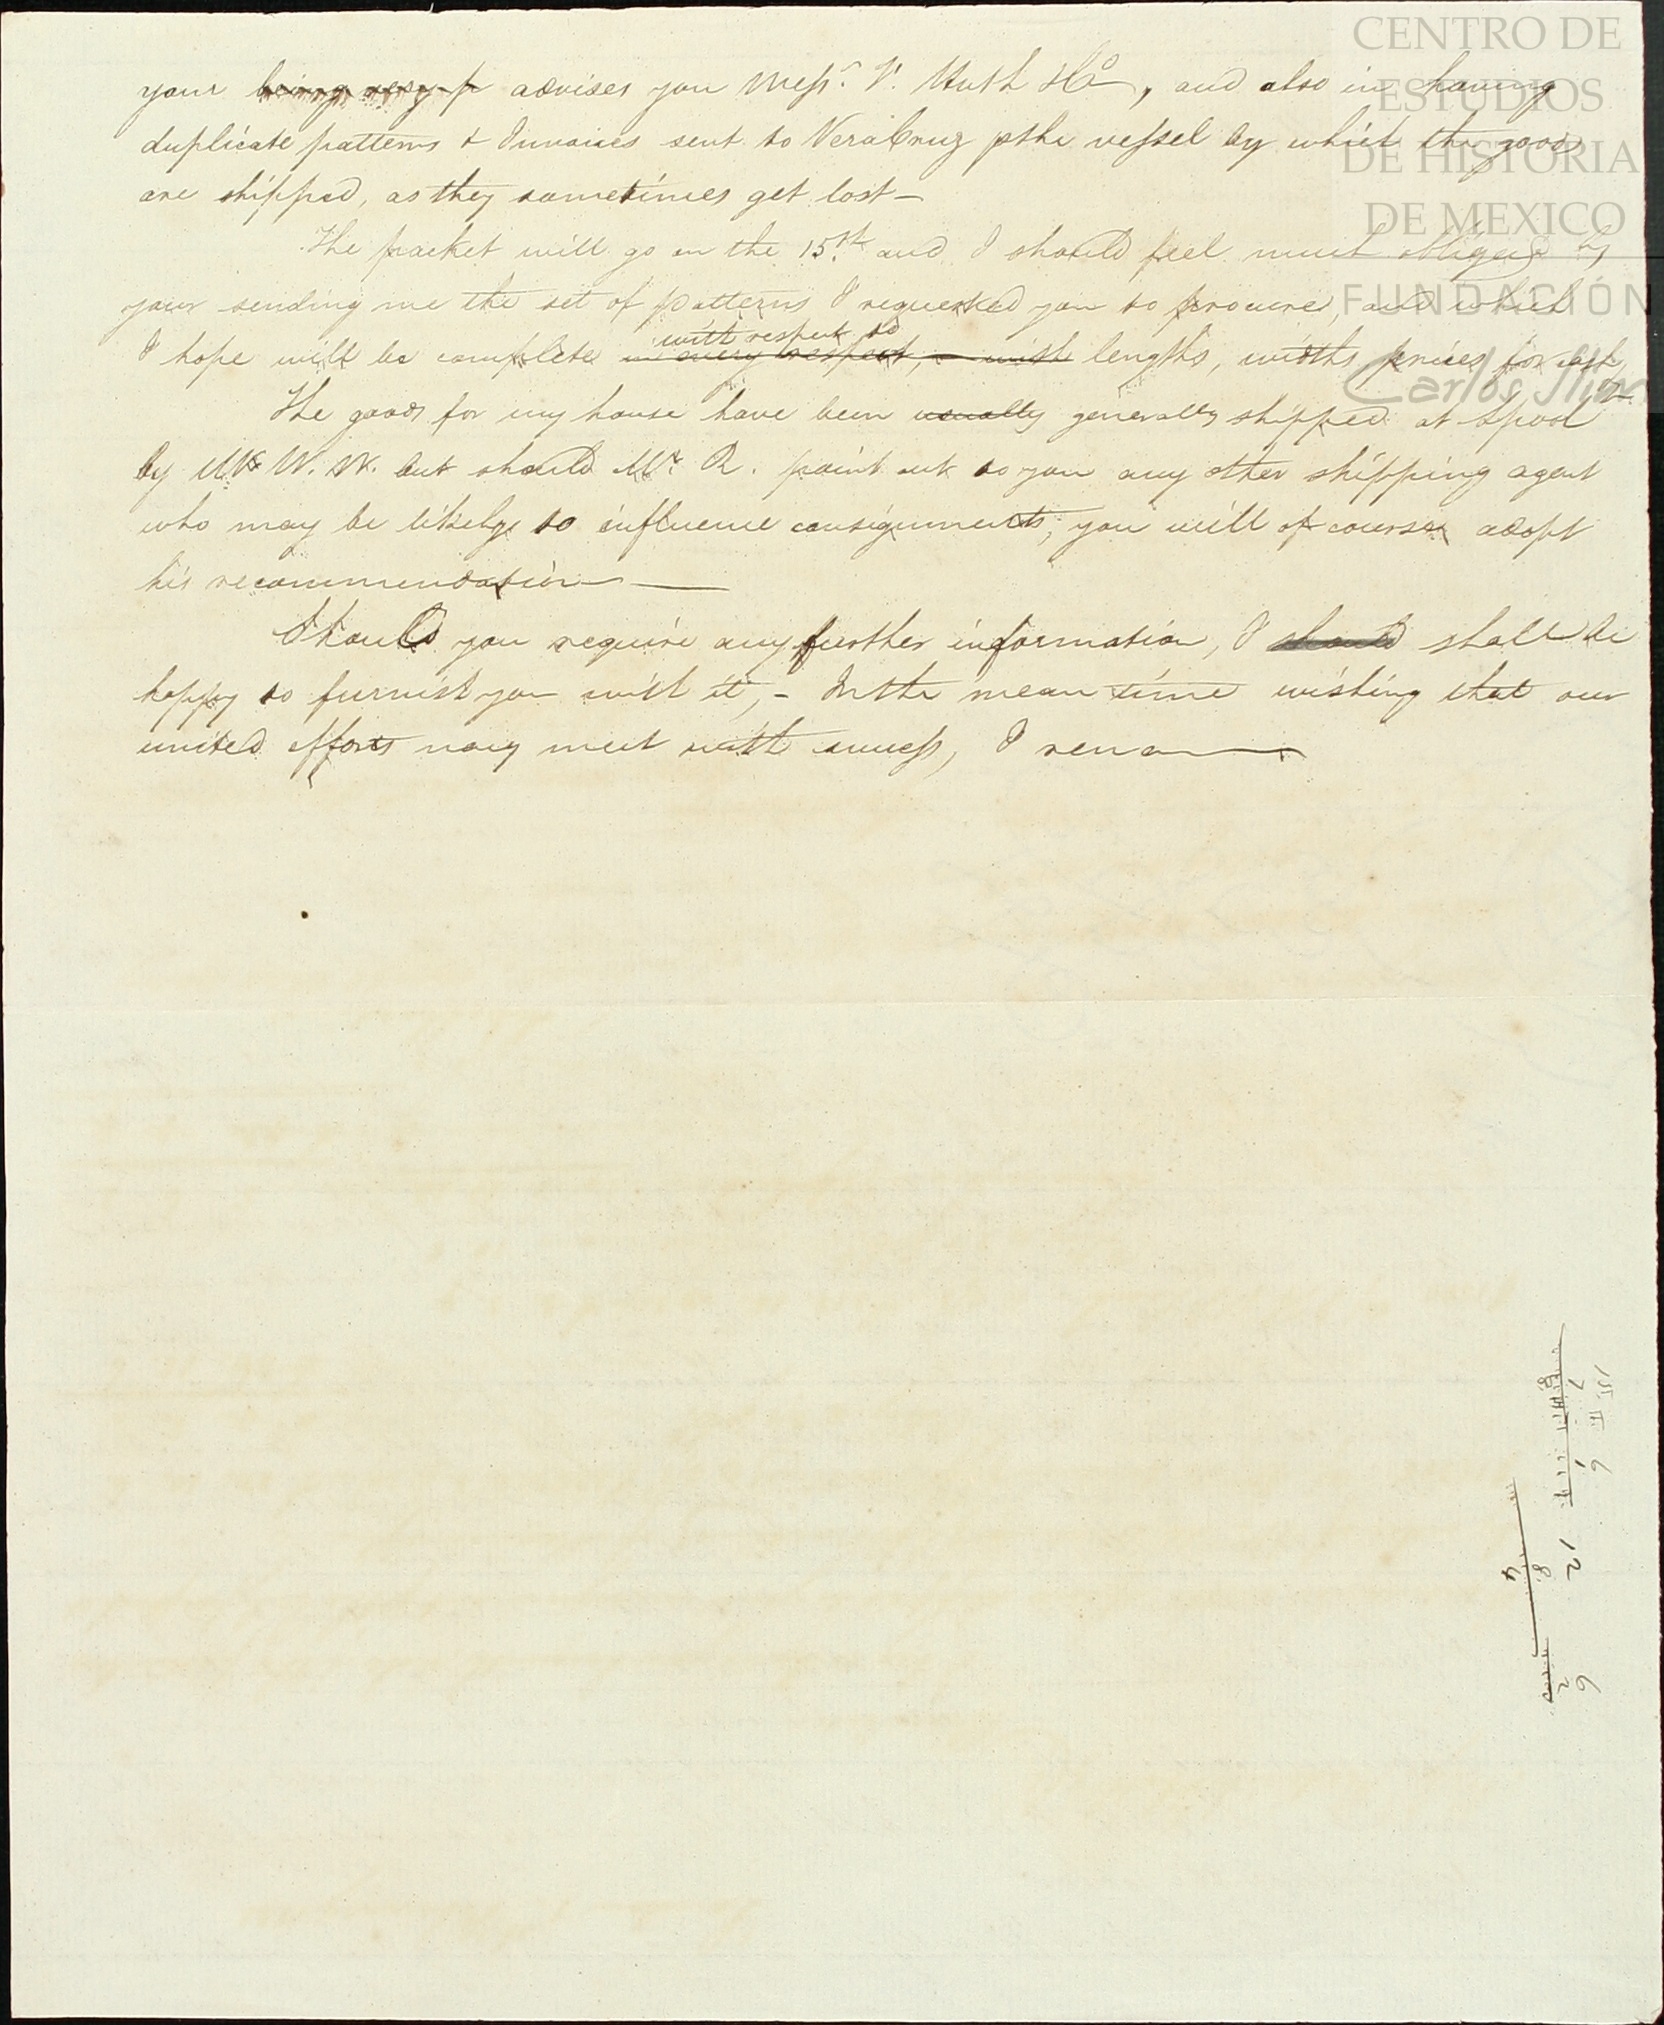 CENTRO DE
ESTUDIOS
DE HISTORIA
DE MEXICO
FUNDACIÓN
Carlos Slim
your being very p advises you Messrs. F. Huth & Co, and also in having
duplicate patterns & Invoices sent to Vera Cruz p the vessel by which the goods
are shipped, as they sometimes get lost —
The packet will go on the 15th and I should feel much obliged by
your sending me the set of patterns I requested you to procure, and which
with respect to
I hope will be complete in every respect, — with lengths, widths, prices for cash,
The goods for my house have been usually generally shipped at Lpool
by W. W. but should Mr. R. point out to you any other shipping agent
who may be likely to influence consignments, you will of course adopt
his recommendation —
Should you require any further information, I should shall be
happy to furnish you with it, — In the mean time wishing that our
united efforts may meet with success, I remain
6
12
8
4
6
2